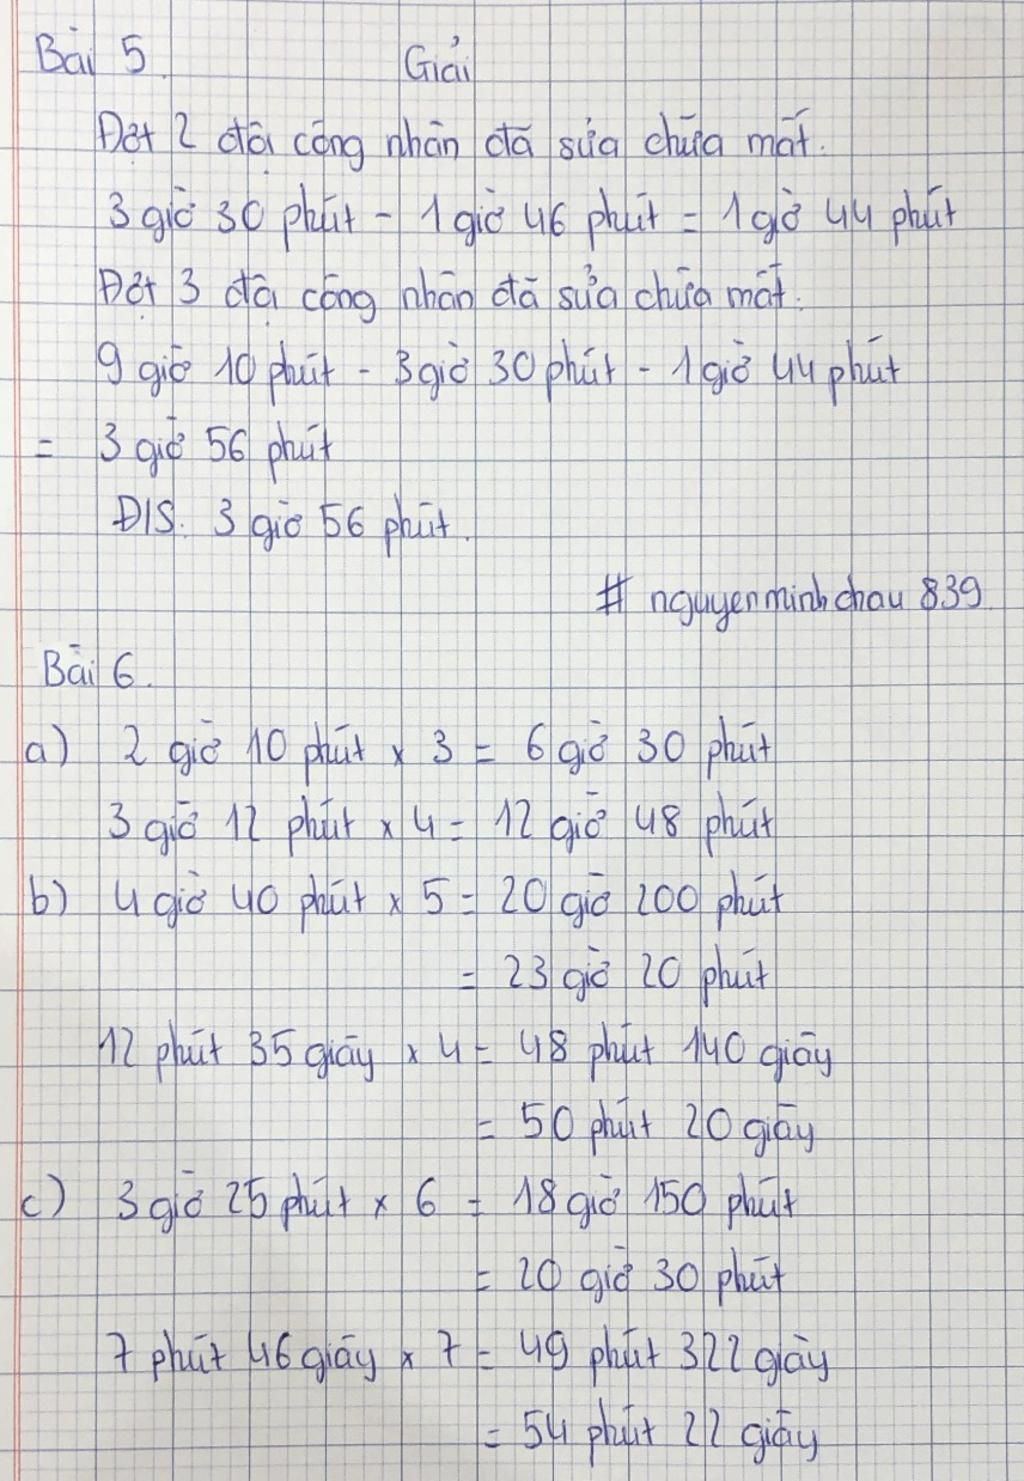 Bài 5.
Giải
Đợt 2 đội công nhân đã sửa chữa mất:
3 giờ 30 phút - 1 giờ 46 phút = 1 giờ 44 phút
Đợt 3 đội công nhân đã sửa chữa mất:
9 giờ 10 phút - 3 giờ 30 phút - 1 giờ 44 phút
= 3 giờ 56 phút
Đ/S: 3 giờ 56 phút.
# nguyenminhchau 839
Bài 6.
a) 2 giờ 10 phút x 3 = 6 giờ 30 phút
3 giờ 12 phút x 4 = 12 giờ 48 phút
b) 4 giờ 40 phút x 5 = 20 giờ 200 phút
= 23 giờ 20 phút
12 phút 35 giây x 4 = 48 phút 140 giây
= 50 phút 20 giây
c) 3 giờ 25 phút x 6 = 18 giờ 150 phút
= 20 giờ 30 phút
7 phút 46 giây x 7 = 49 phút 322 giây
= 54 phút 22 giây